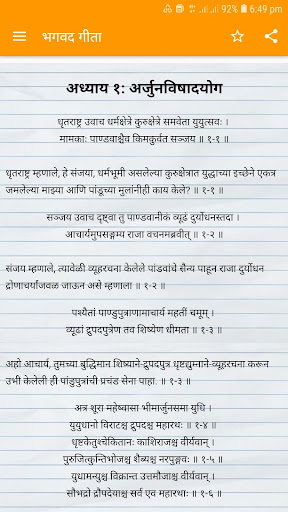 92% 6:49 pm
भगवद गीता
अध्याय १: अर्जुनविषादयोग
धृतराष्ट्र उवाच धर्मक्षेत्रे कुरुक्षेत्रे समवेता युयुत्सवः ।
मामकाः पाण्डवाश्चैव किमकुर्वत सञ्जय ॥ १-१ ॥
धृतराष्ट्र म्हणाले, हे संजया, धर्मभूमी असलेल्या कुरुक्षेत्रात युद्धाच्या इच्छेने एकत्र
जमलेल्या माझ्या आणि पांडूच्या मुलांनीही काय केले? ॥ १-१ ॥
सञ्जय उवाच दृष्ट्वा तु पाण्डवानीकं व्यूढं दुर्योधनस्तदा ।
आचार्यमुपसङ्गम्य राजा वचनमब्रवीत् ॥ १-२ ॥
संजय म्हणाले, त्यावेळी व्यूहरचना केलेले पांडवांचे सैन्य पाहून राजा दुर्योधन
द्रोणाचार्यांजवळ जाऊन असे म्हणाला ॥ १-२ ॥
पश्यैतां पाण्डुपुत्राणामाचार्य महतीं चमूम् ।
व्यूढां द्रुपदपुत्रेण तव शिष्येण धीमता ॥ १-३ ॥
अहो आचार्य, तुमच्या बुद्धिमान शिष्याने-द्रुपदपुत्र धृष्टद्युम्नाने-व्यूहरचना करून
उभी केलेली ही पांडुपुत्रांची प्रचंड सेना पाहा. ॥ १-३ ॥
अत्र शूरा महेष्वासा भीमार्जुनसमा युधि ।
युयुधानो विराटश्च द्रुपदश्च महारथः ॥ १-४ ॥
धृष्टकेतुश्चेकितानः काशिराजश्च वीर्यवान् ।
पुरुजित्कुन्तिभोजश्च शैब्यश्च नरपुङ्गवः ॥ १-५ ॥
युधामन्युश्च विक्रान्त उत्तमौजाश्च वीर्यवान् ।
सौभद्रो द्रौपदेयाश्च सर्व एव महारथाः ॥ १-६ ॥